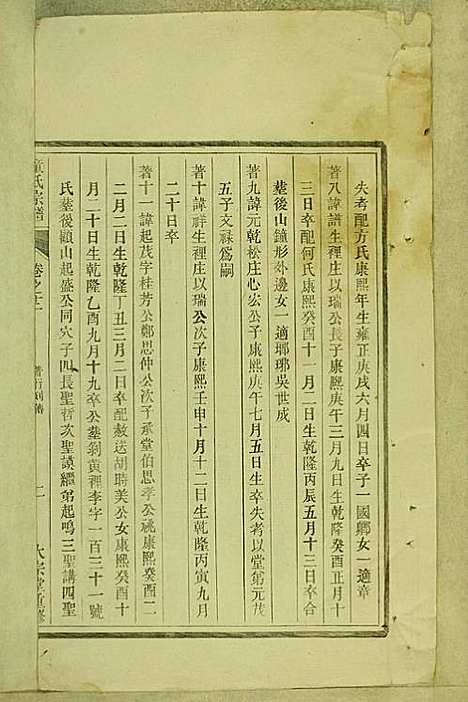 失考配方氏康熙年生雍正庚戌六月四日卒子一國卿女一適章
蓍八諱譜生裡庄以瑞公長子康熙庚午三月九日生乾隆癸酉正月十
三日卒配何氏康熙癸酉十一月二日生乾隆丙辰五月十三日卒合
塟後山鐘形外邊女一適瑯琊吳世成
蓍九諱元乾松庄心宏公子康熙庚午七月五日生卒失考以堂弟元茂
五子文祿爲嗣
蓍十諱祥生裡庄以瑞公次子康熙壬申十月十二日生乾隆丙寅九月
二十日卒
蓍十一諱起茂字桂芳公鄭思仲公次子承堂伯思孝公祧康熙癸酉二
二月二日生乾隆丁丑三月二日卒配敖送胡時美公女康熙癸酉十
月二十日生乾隆乙酉九月十九卒公塟剝黃裡李字一百三十一號
氏塟後巓山起盛公同穴子四長聖哲次聖謨繼弟起鳴三聖講四聖
童氏宗譜
卷之十二